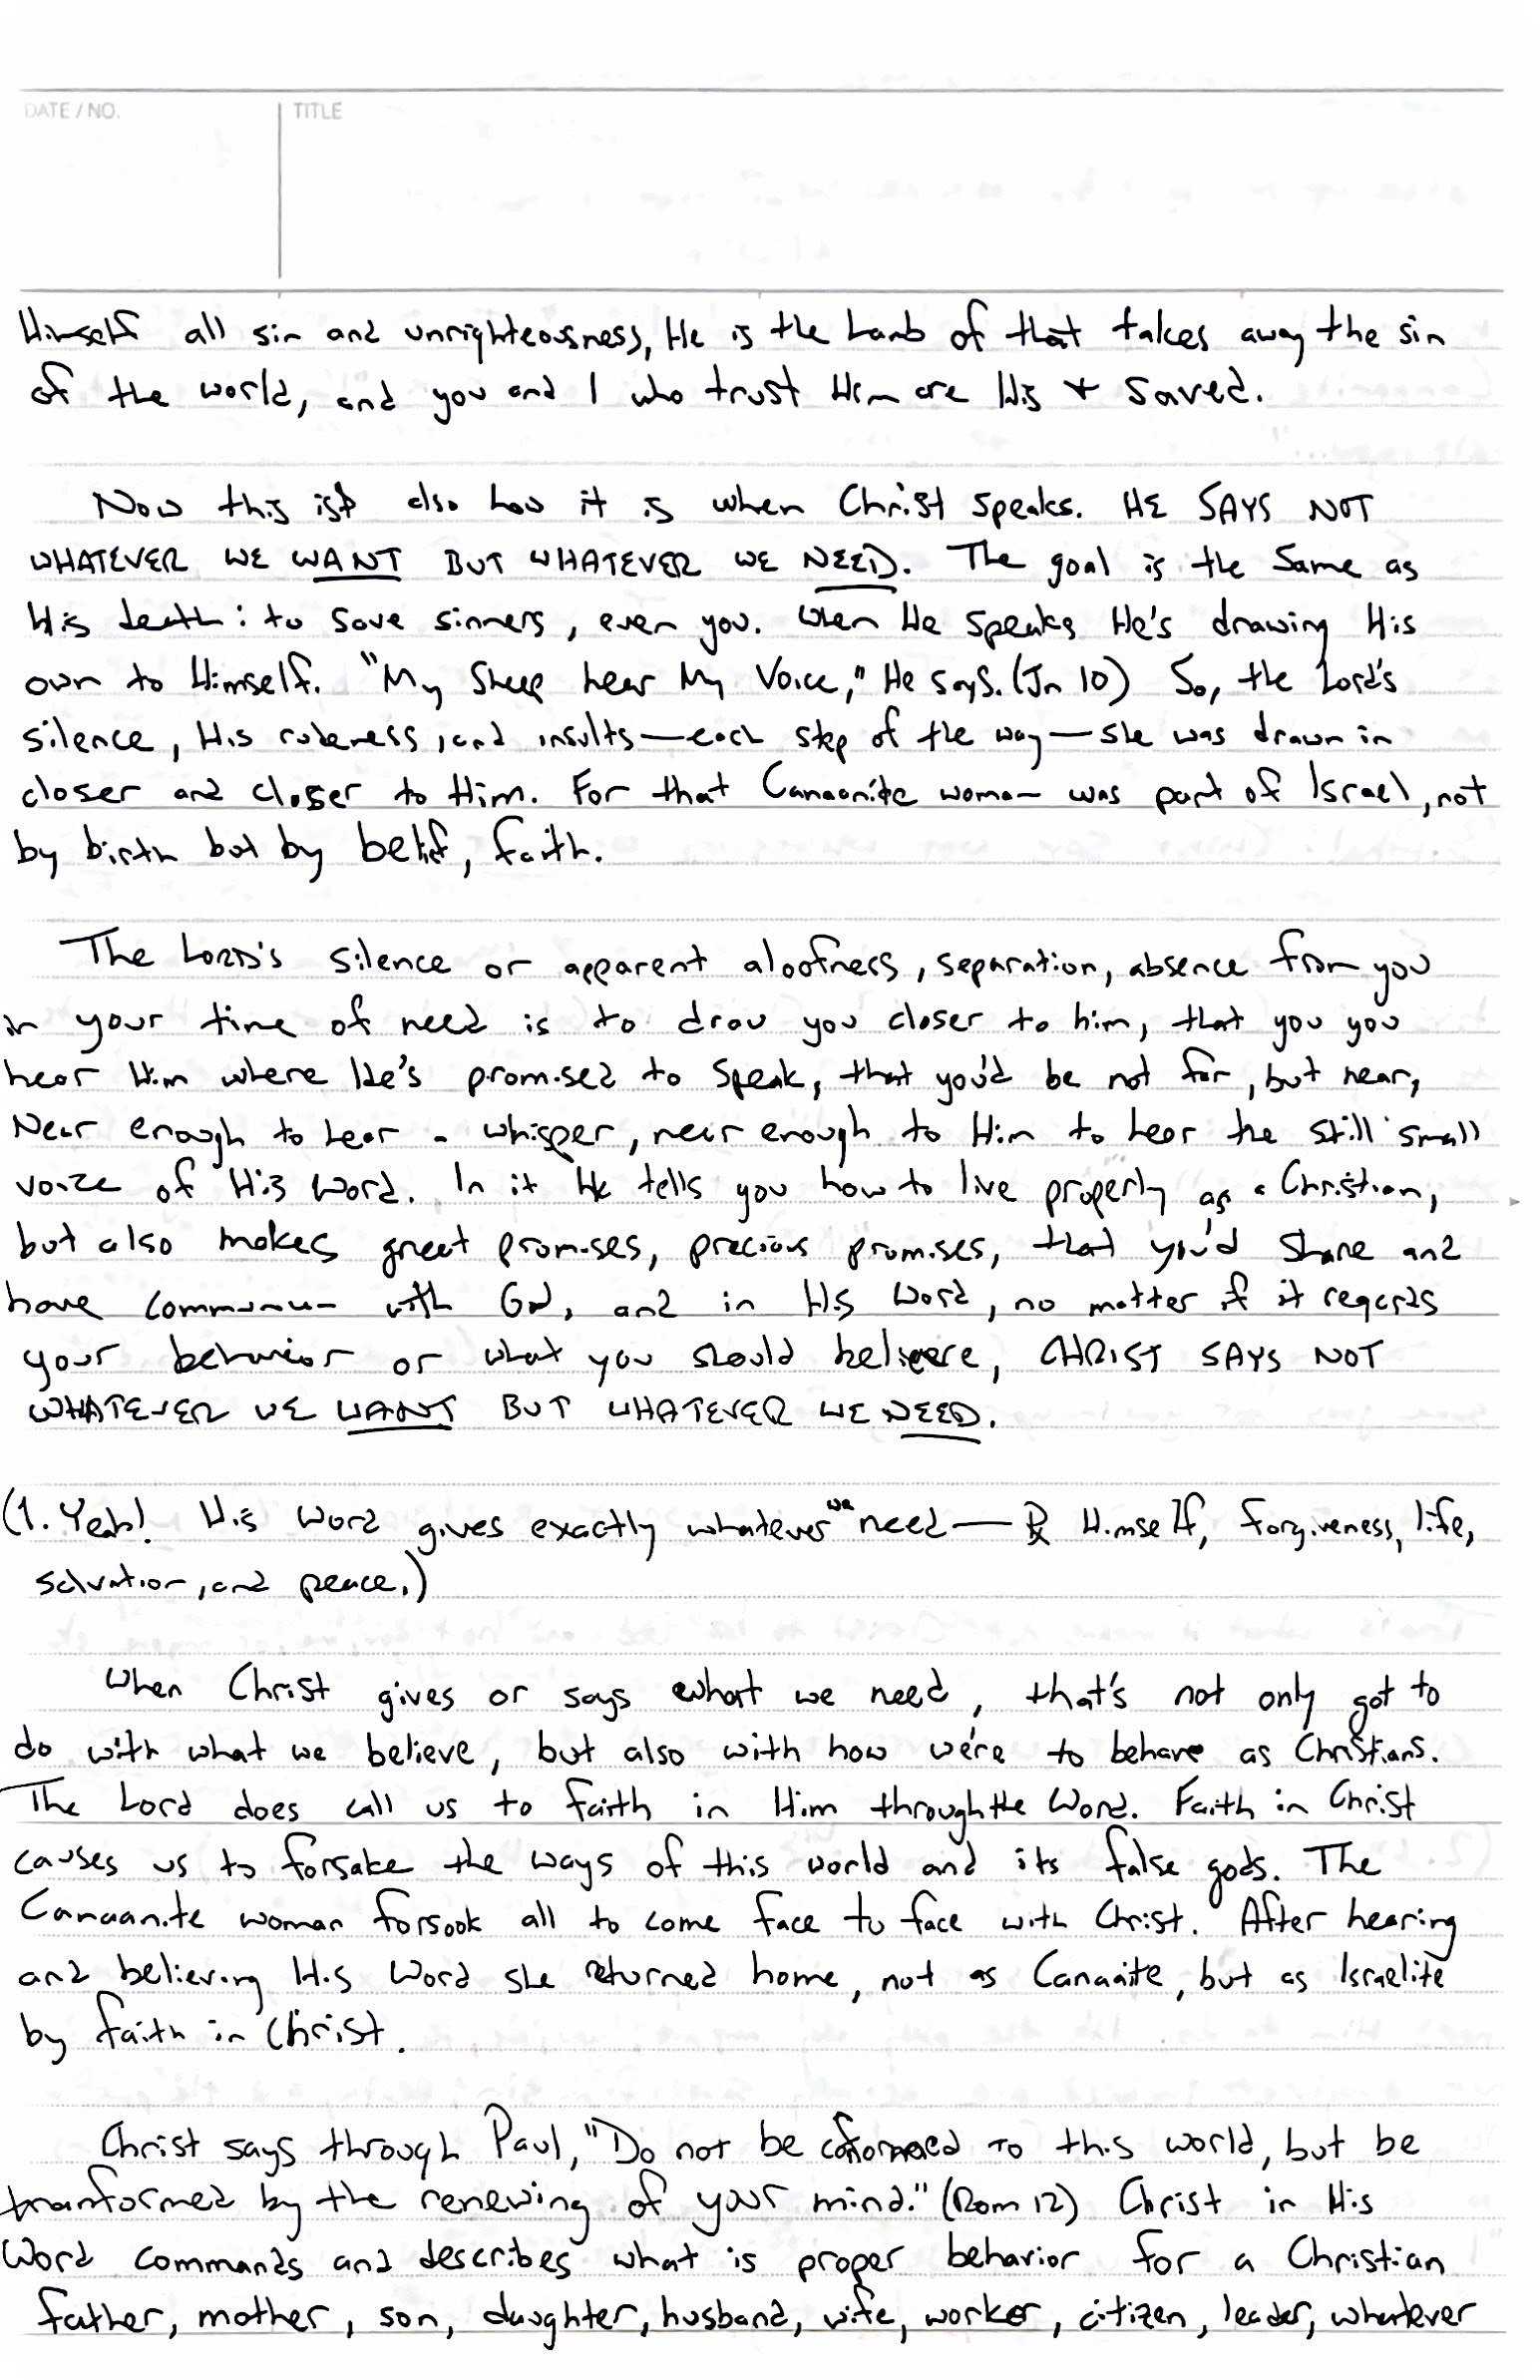 DATE / NO.
TITLE
Himself all sin and unrighteousness, He is the Lamb of that takes away the sin
of the world, and you and I who trust Him are His + saved.
Now this is also how it is when Christ speaks. HE SAYS NOT
WHATEVER WE WANT BUT WHATEVER WE NEED. The goal is the same as
His death: to save sinners, even you. When He speaks He's drawing His
own to Himself. "My Sheep hear My Voice," He says. (Jn 10) So, the Lord's
silence, His rudeness, and insults—each step of the way—she was drawn in
closer and closer to Him. For that Canaanite woman was part of Israel, not
by birth but by belief, faith.
The LORD's silence or apparent aloofness, separation, absence from you
in your time of need is to draw you closer to him, that you you
hear Him where He's promised to speak, that you'd be not far, but near,
Near enough to hear a whisper, near enough to Him to hear the still small
voice of His Word. In it He tells you how to live properly as a Christian,
but also makes great promises, precious promises, that you'd share and
have with God, and in His Word, no matter if it regards
your behavior or what you should believe, CHRIST SAYS NOT
WHATEVER WE WANT BUT WHATEVER WE NEED.
(1. Yeah! His Word gives exactly whatever we need— Himself, forgiveness, life,
salvation, and peace.)
When Christ gives or says what we need, that's not only got to
do with what we believe, but also with how we're to behave as Christians.
The Lord does call us to faith in Him through the Word. Faith in Christ
causes us to forsake the ways of this world and its false gods. The
Canaanite woman forsook all to come face to face with Christ. After hearing
and believing His Word she returned home, not as Canaaite, but as Israelite
by faith in Christ.
Christ says through Paul, "Do not be conformed to this world, but be
tranformed by the renewing of your mind." (Rom 12) Christ in His
Word commands and describes what is proper behavior for a Christian
father, mother, son, daughter, husband, wife, worker, citizen, leader, whatever